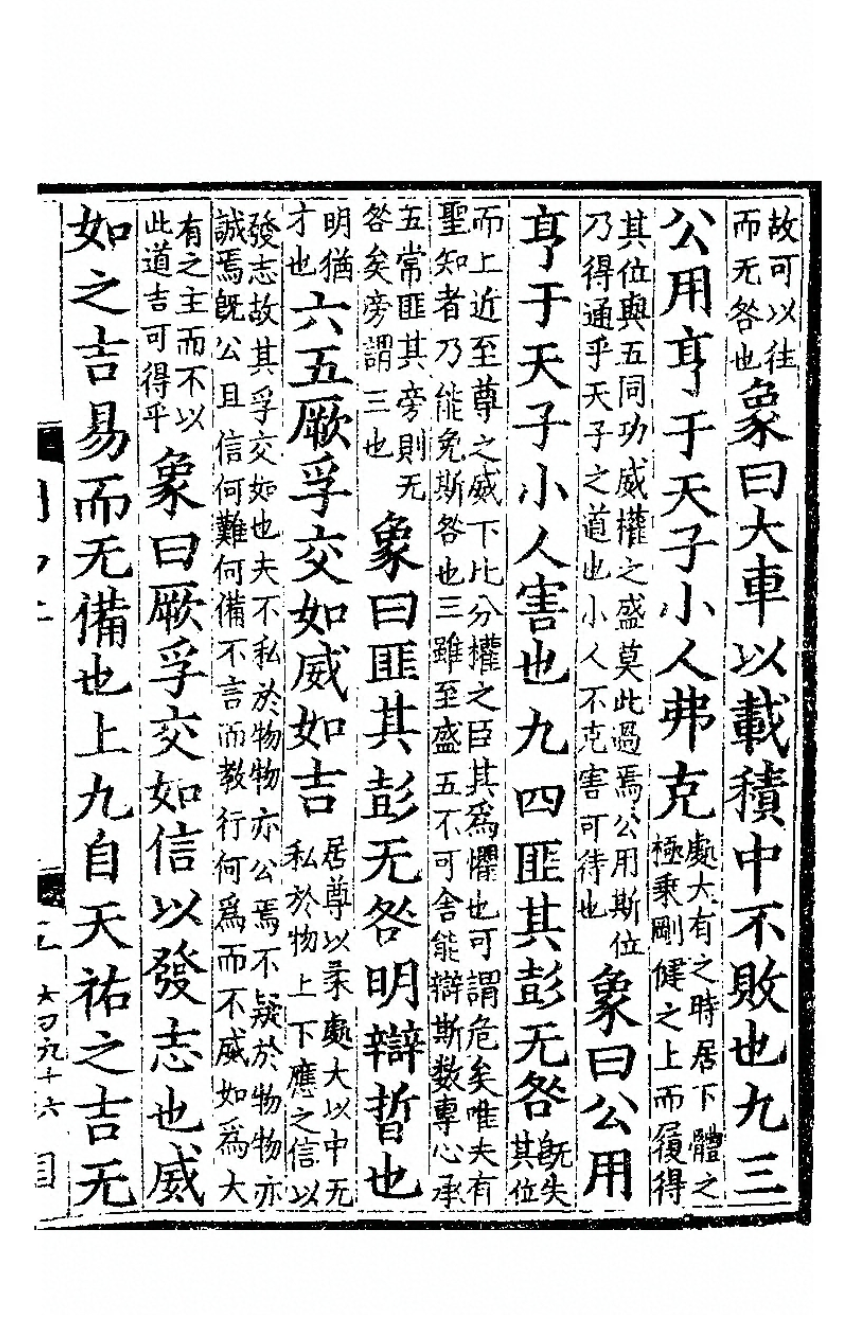 故可以往而无咎也象曰大車以載積中不敗也九三
公用亨于天子小人弗克處大有之時居下體之極乗剛健之上而履得
其位與五同功威權之盛莫此過焉公用斯位乃得通乎天子之道也小人不克害可待也象曰公用
亨于天子小人害也九四匪其彭无咎既失其位
而上近至尊之威下比分權之臣其爲懼也可謂危矣唯夫有聖知者乃能免斯咎也三雖至盛五不可舍能辯斯數專心承
五常匪其旁則无咎矣旁謂三也象曰匪其彭无咎明辯晢也
明猶才也六五厥孚交如威如吉居尊以柔處大以中无私於物上下應之信以
發志故其孚交如也夫不私於物物亦公焉不疑於物物亦誠焉既公且信何難何備不言而教行何爲而不威如爲大
有之主而不以此道吉可得乎象曰厥孚交如信以發志也威
如之吉易而无備也上九自天祐之吉无